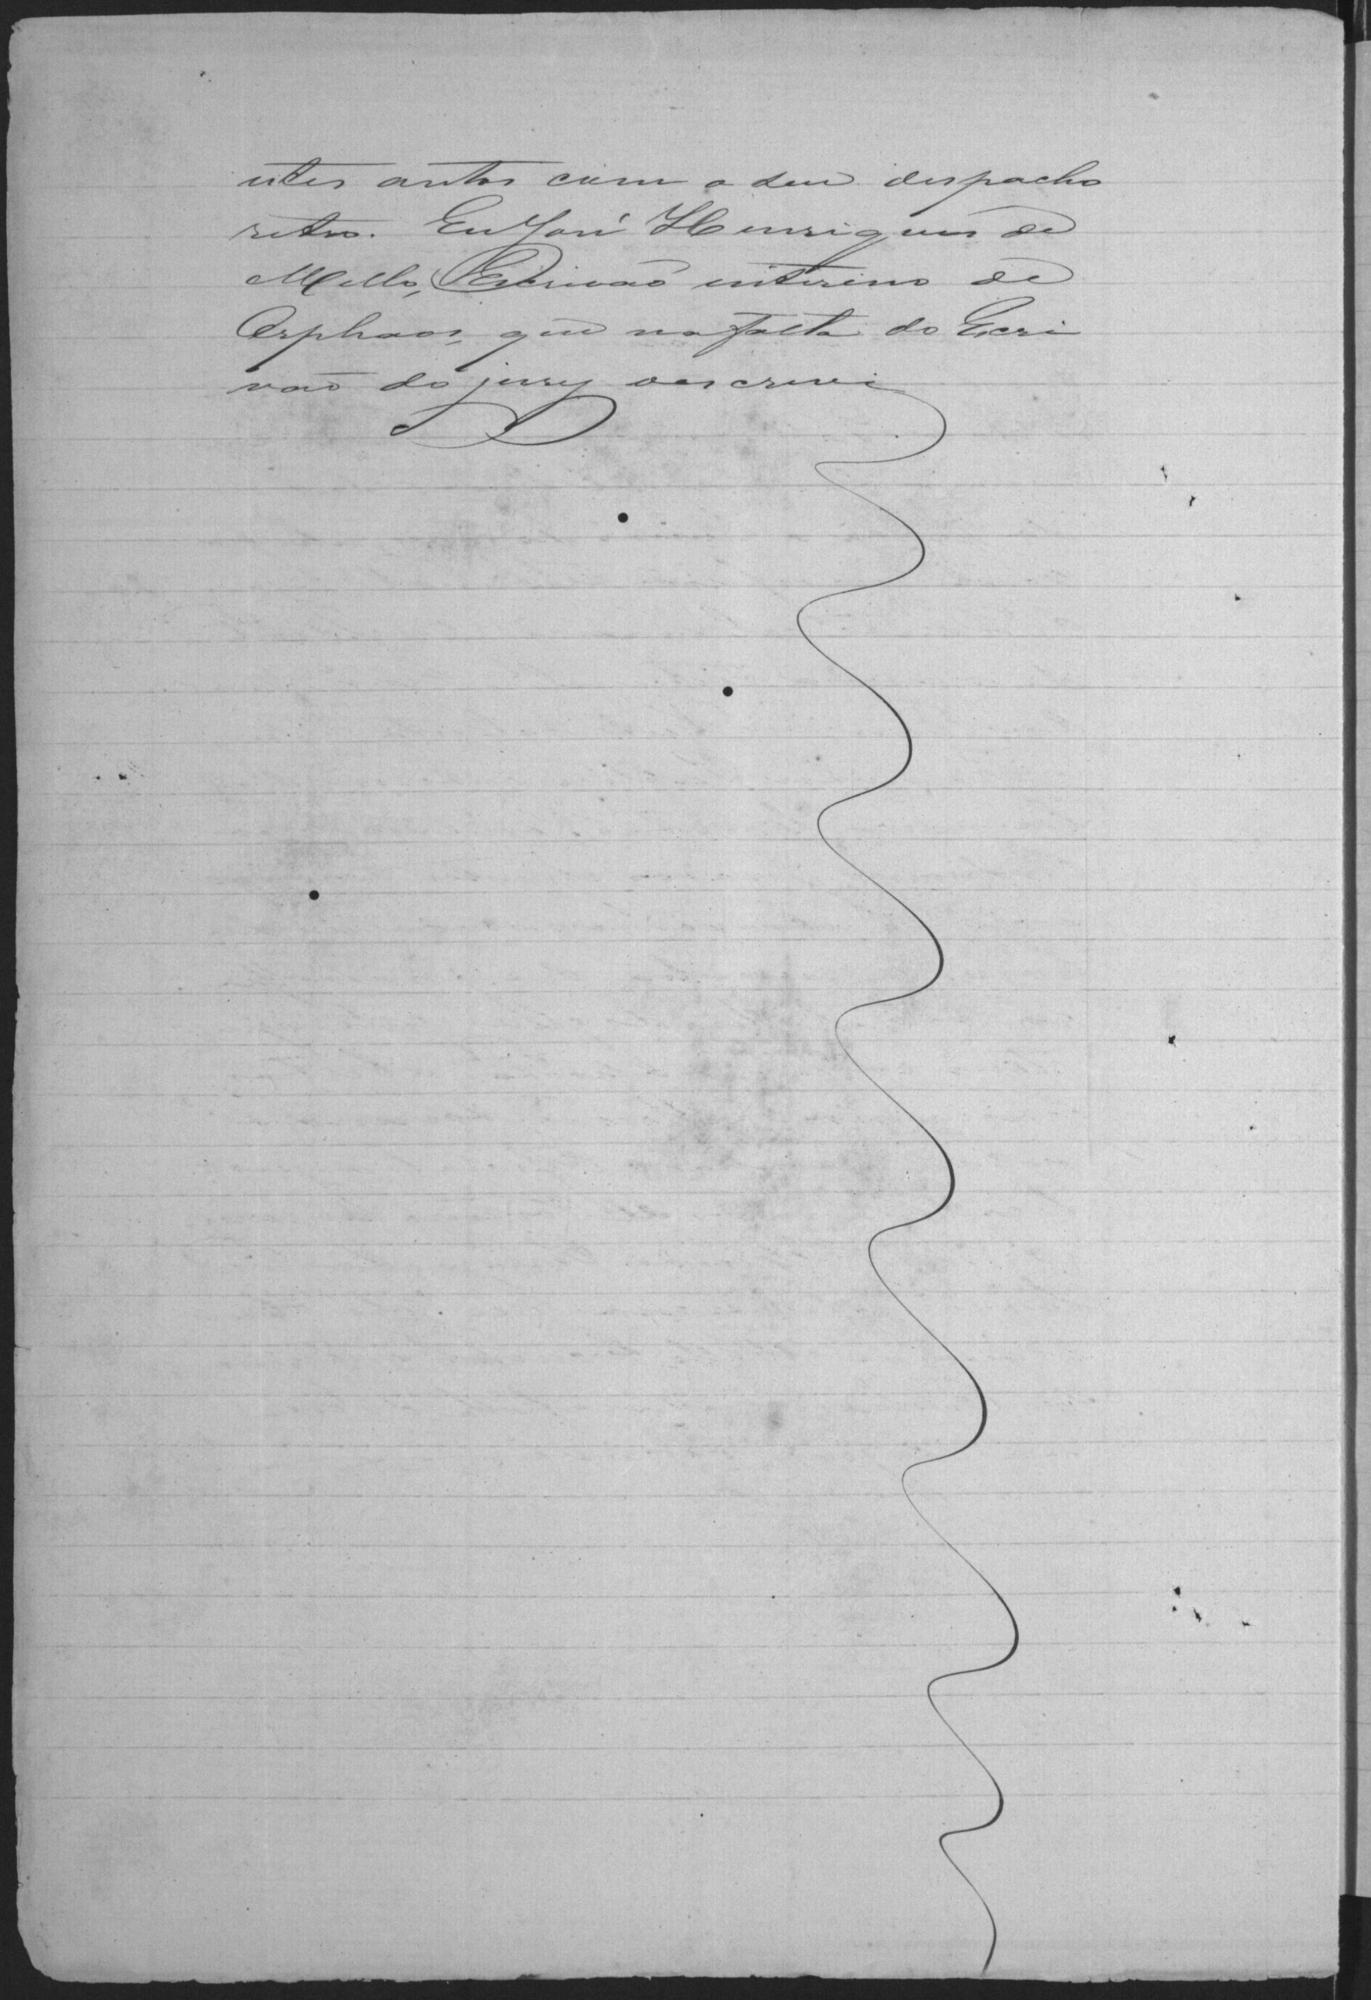 estes autos com o seu despacho
retro. Eu José Henriques de
Mello, Escrivão interino de
Orphaos, que na falta do Escri
vaõ do jury o escrevi